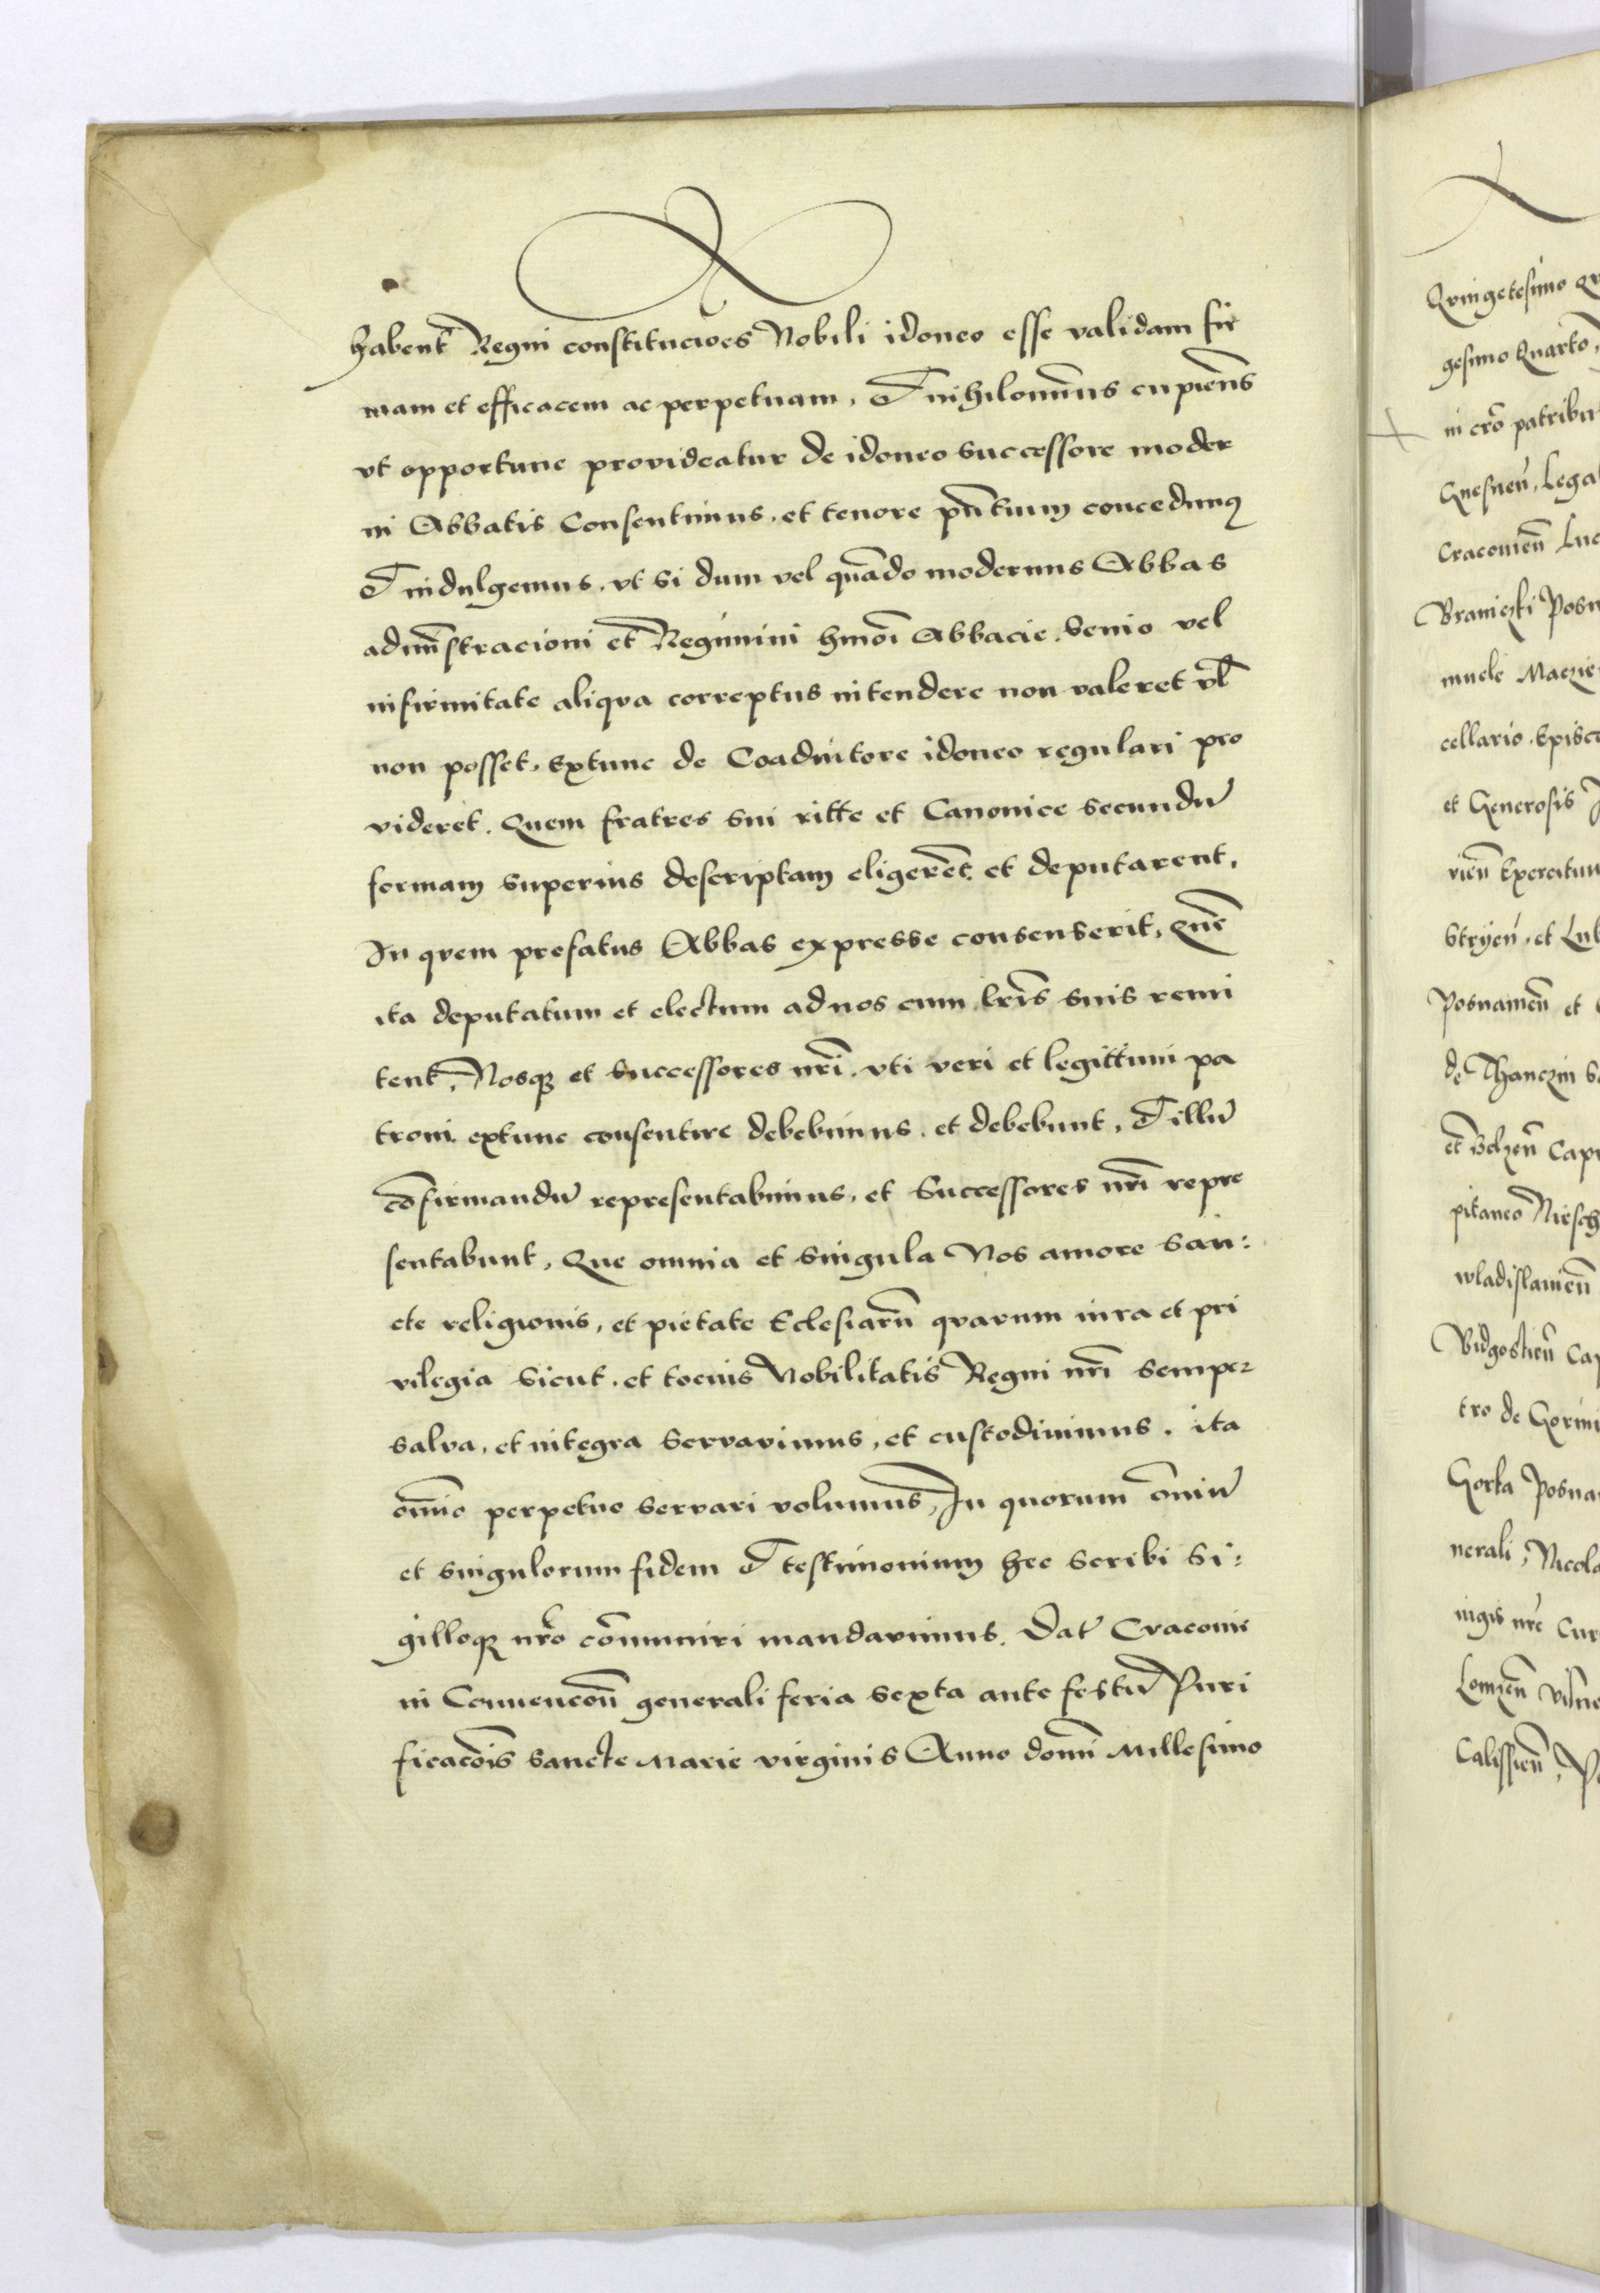 habent Regni constitucioes Nobili idoneo esse validam fir
mam et efficacem ac perpetuam, Et nihilominus cupiens
vt opportune provideatur de idoneo successore moder
ni Abbatis Consentimus, et tenore pñtium concedimus
Et indulgemus, vt si dum vel quãdo modernus Abbas
admĩstracioni et Regimini hmõi Abbacie, senio vel
infirmitate aliqua correptus intendere non valeret vl̃
non posset, Extunc de Coadiutore idoneo regulari pro
videret. Quem fratres sui ritte et Canonice secundũ
formam superius descriptam eligerẽt et deputarent,
In quem prefatus Abbas expresse consenserit, Quẽ
ita deputatum et electum ad nos cum lr̃is suis remi
tent, Nosq3 et Successores nr̃i, vti veri et legittimi pa
troni extunc consentire debebimus, et debebunt, Et illũ
cõfirmandũ representabimus, et Successores nr̃i repre
sentabunt, Que omnia et singula Nos amore san:
cte religionis, et pietate Eclesiarũ quarum iura et pri
vilegia sicut, et tocius Nobilitatis Regni nr̃i semper
salva, et integra servavimus, et custodivimus. ita
om̃ia perpetuo servari volumus, In quorum õniũ
et singulorum fidem Et testimonium hec scribi Si:
gilloq3 nr̃o cõmuniri mandavimus. Dat̃ Cracovie
in Convencoñ generali feria sexta ante festũ Puri
ficacõis sancte Marie virginis Anno domĩ Millesimo
Quingetesimo
gesimo Quarto,
in cr̃o patribu
Gnesneñ, Lega
Cracovieñ Luc
Braniczki Posn
muele Maczie
cellario, Episco
et Generosis
vieñ Exercituu
Stryeñ, et Lub
Posnanieñ et
de Thanczin
et Belzeñ Capi
pitaneo
wladislavieñ
Bidgostieñ Cap
tro de
Gorka Posna
nerali, Nicola
nigis nr̃e Cur
Lomzeñ
Calissieñ, P